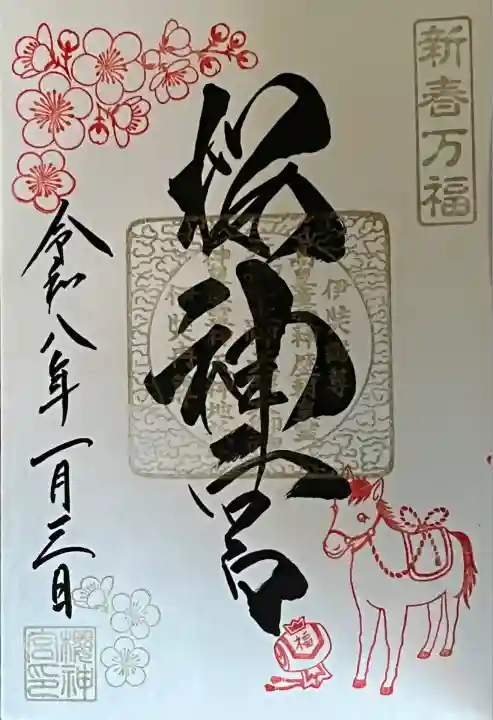 新春万福
桜神宮
伊弉諾尊
令和八年一月三日
福
櫻神
宮印